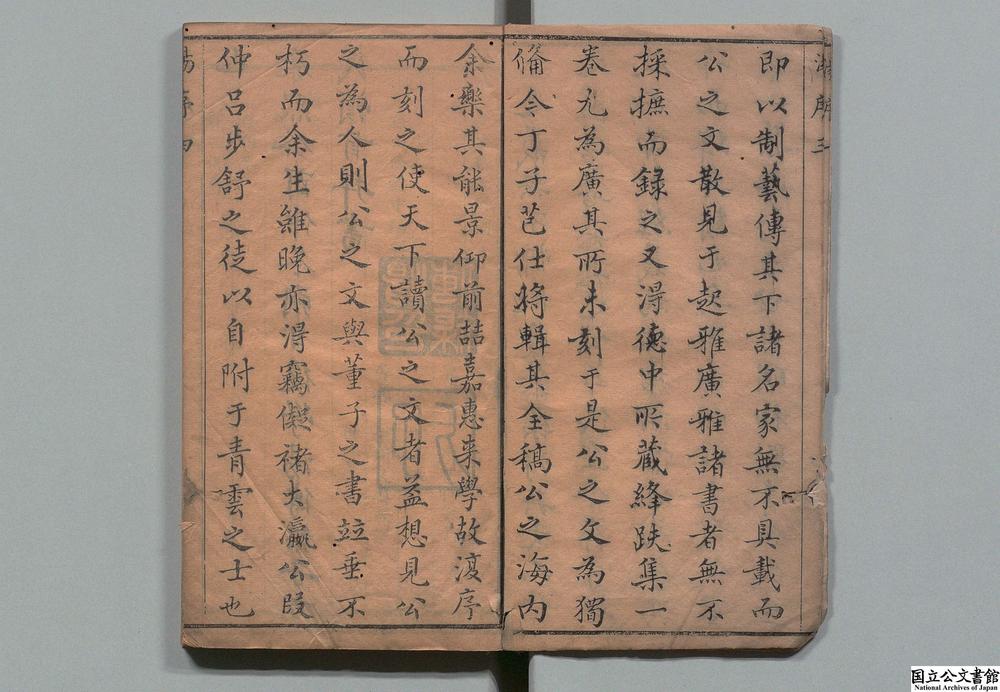 即以制藝傳其下諸名家無不具載而
公之文散見于起雅廣雅諸書者無不
採摭而錄之又得德中所蔵絳跌集一
卷尤為廣其所未刻于是公之文為獨
備今丁子芑仕將輯其全稿公之海内
余樂其能景仰前喆嘉惠来學故湲序
而刻之使天下讀公之文者益想見公
之為人則公之文與董子之書竝垂不
朽而余生雖晚亦得竊儗禇大瀛公段
仲呂步舒之徒以自附于青雲之士也
国立公文書館
National Archives of Japan